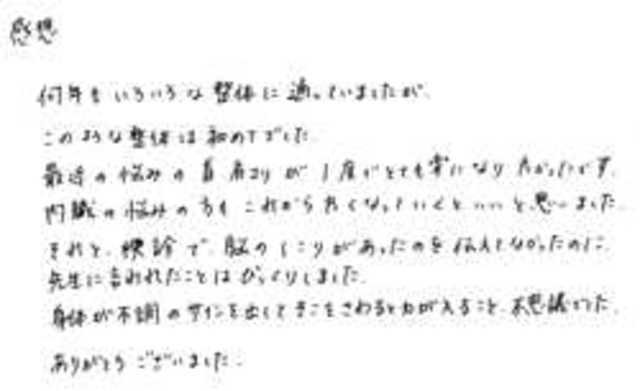 感想
何年もいろいろな整体に通っていましたが、
このような整体は初めてでした。
最近の悩みの首肩コリが1度でとても楽になりありがたかったです。
内臓の悩みの方もこれから良くなっていくといいと思いました。
それと、検診で、脳のしこりがあったのを伝えてなかったのに
先生に言われたことはびっくりしました。
身体が不調のサインを出してそこをさわると力が入ること、不思議でした。
ありがとうございました。